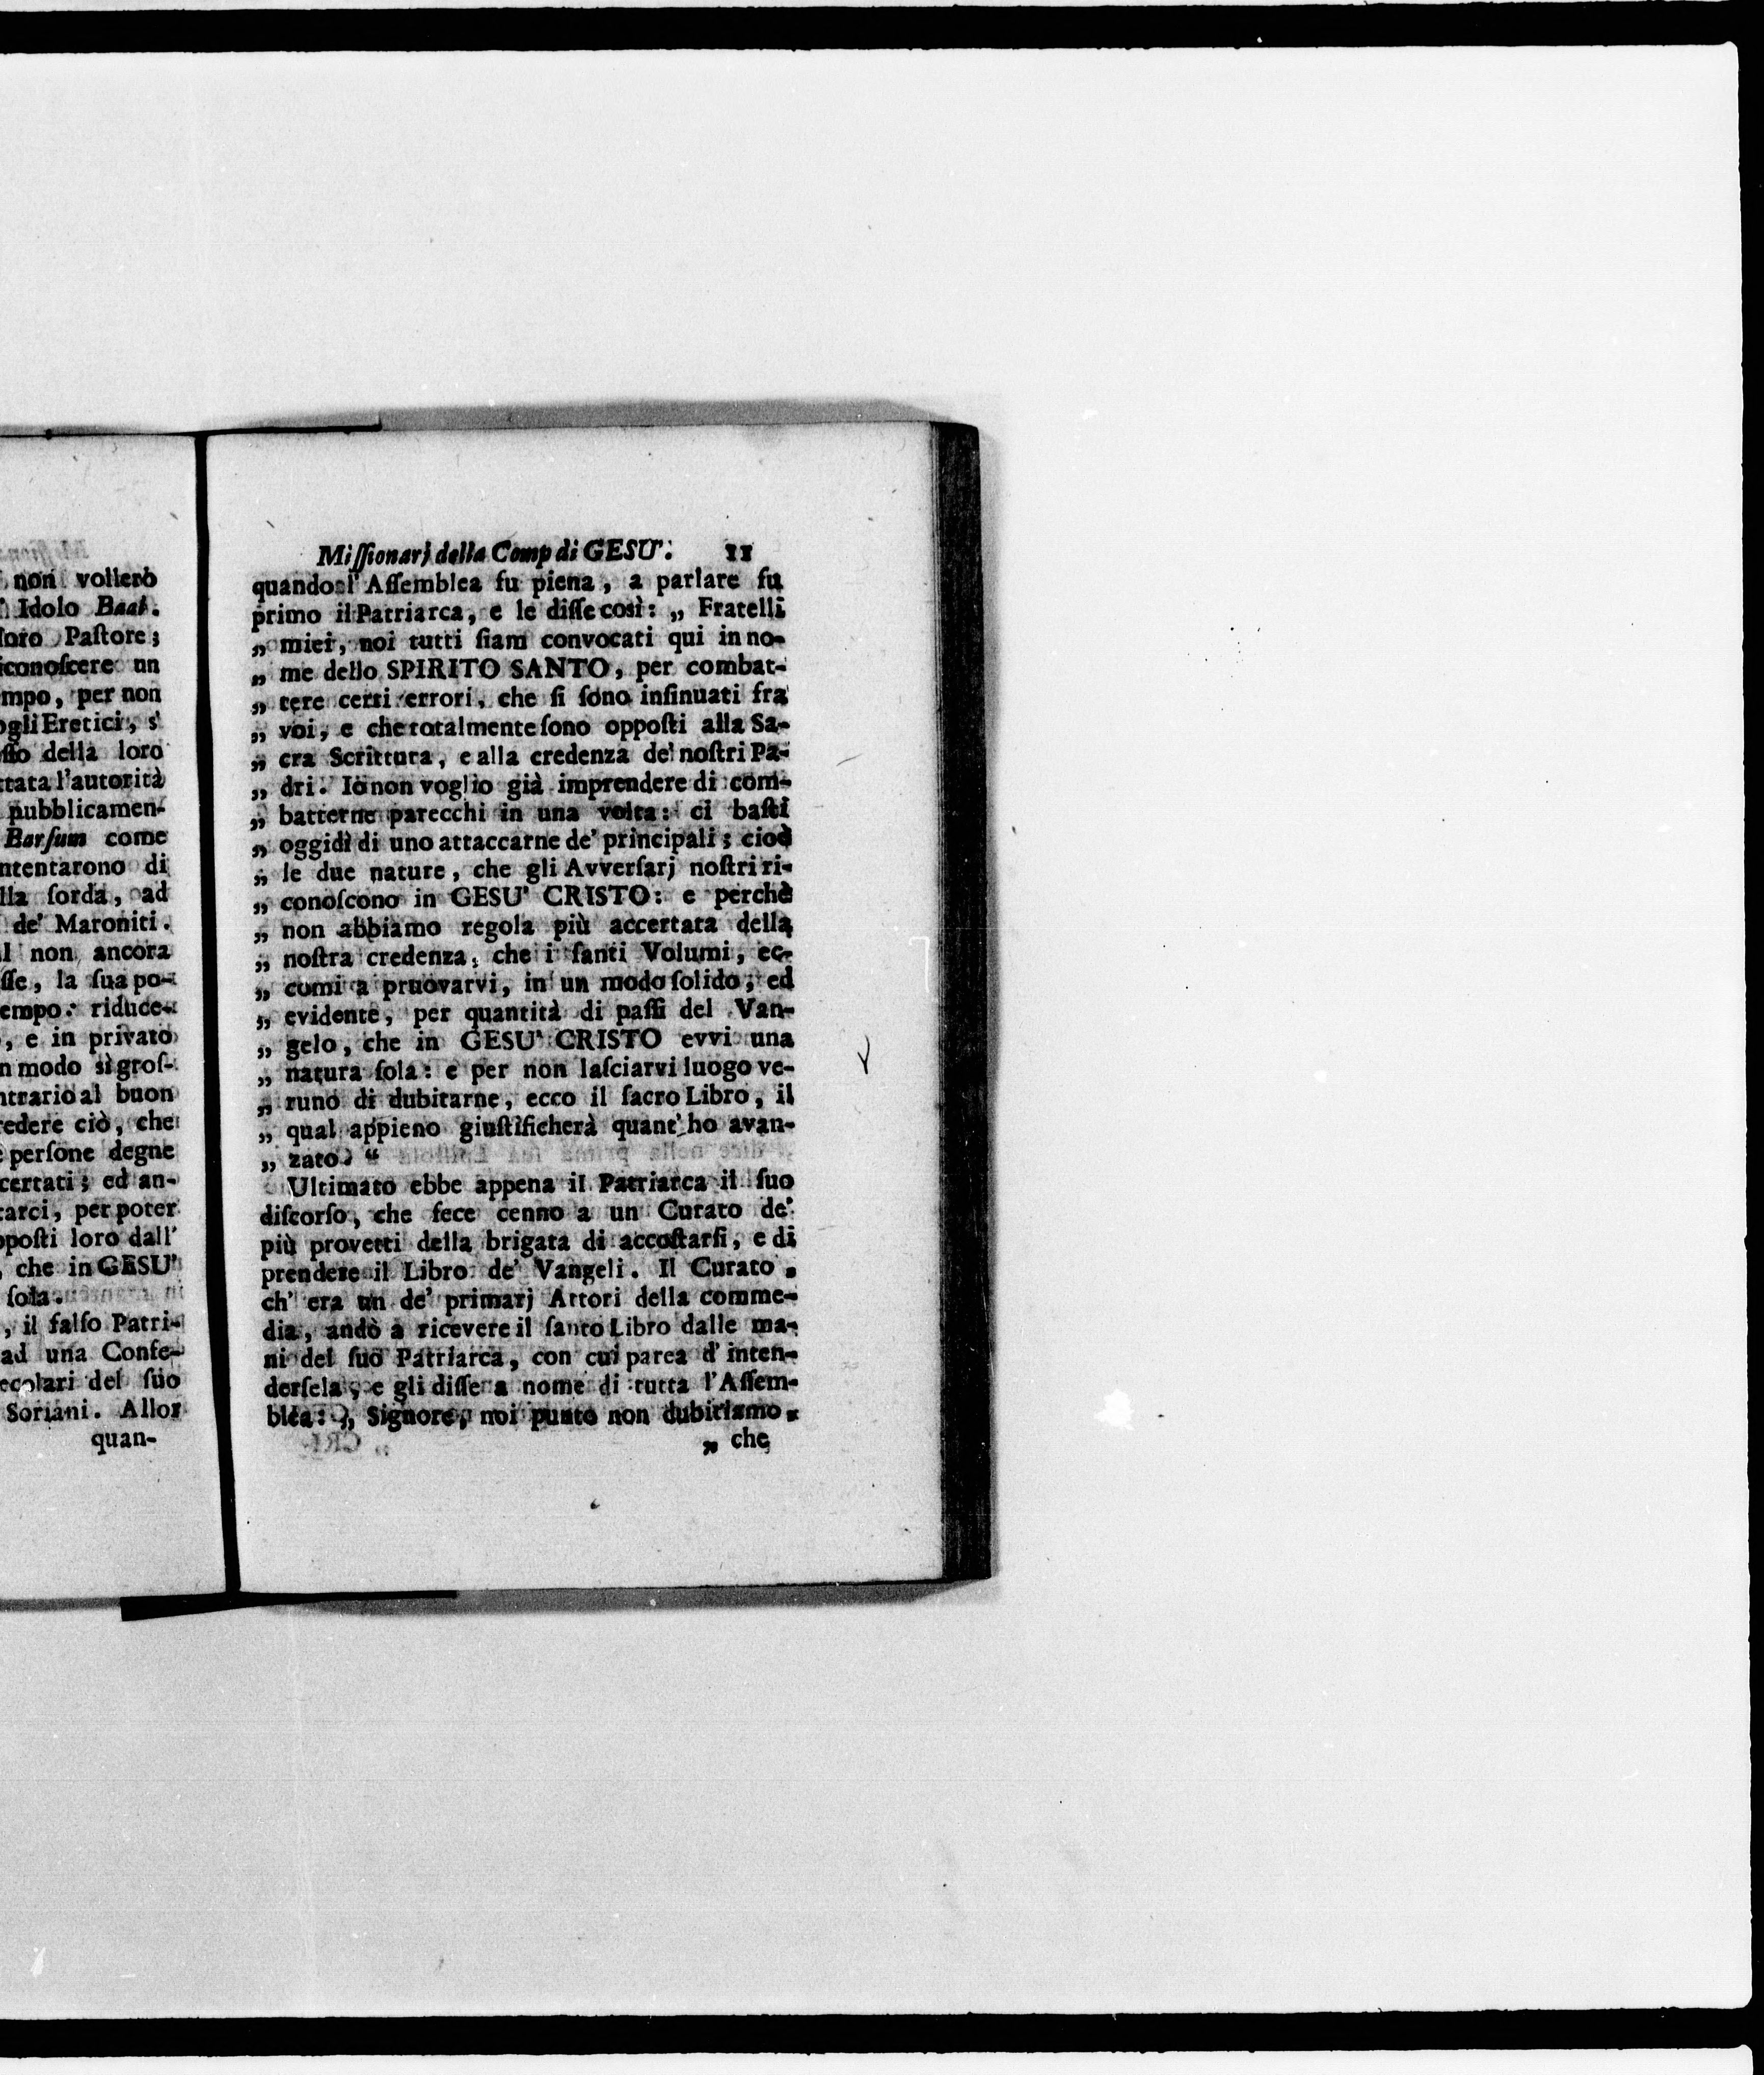 non vollero
Idolo Baal.
loro Paſtore;
iconoſcere un
mpo, per non
ogli Eretici, s'
ſſo della loro
ttata l'autorità
pubblicamen-
Barſum come
ntentarono di
lla ſorda, ad
de' Maroniti.
l non ancora
ſſe, la ſua po-
empo: riduce-
, e in privato
n modo sì groſ-
ntrario al buon
redere ciò, che
e perſone degne
certati; ed an-
tarci, per poter
ppoſti loro dall'
, che in GESU'
ſola.
, il falſo Patri-
ad una Confe-
ecolari del ſuo
Soriani. Allor
quan-
Miſſionarj della Comp di GESU'. 11
quando l' Aſſemblea fu piena, a parlare fu
primo il Patriarca, e le diſſe così: „ Fratelli
„ miei, noi tutti ſiam convocati qui in no-
„ me dello SPIRITO SANTO, per combat-
„ tere certi errori, che ſi ſono inſinuati fra
„ voi, e che totalmente ſono oppoſti alla Sa-
„ cra Scrittura, e alla credenza de' noſtri Pa-
„ dri. Io non voglio già imprendere di com-
„ batterne parecchi in una volta: ci baſti
„ oggidì di uno attaccarne de' principali; cioè
„ le due nature, che gli Avverſarj noſtri ri-
„ conoſcono in GESU' CRISTO: e perchè
„ non abbiamo regola più accertata della
„ noſtra credenza, che i ſanti Volumi, ec-
„ comi a pruovarvi, in un modo ſolido, ed
„ evidente, per quantità di paſſi del Van-
„ gelo, che in GESU' CRISTO evvi una
„ natura ſola: e per non laſciarvi luogo ve-
„ runo di dubitarne, ecco il ſacro Libro, il
„ qual appieno giuſtificherà quant' ho avan-
„ zato. “
Ultimato ebbe appena il Patriarca il ſuo
diſcorſo, che fece cenno a un Curato de'
più provetti della brigata di accoſtarſi, e di
prendere il Libro de' Vangeli. Il Curato,
ch' era un de' primarj Attori della comme-
dia, andò a ricevere il ſanto Libro dalle ma-
ni del ſuo Patriarca, con cui parea d' inten-
derſela, e gli diſſe a nome di tutta l'Aſſem-
blea: „ Signore, noi punto non dubitiamo,
„ che